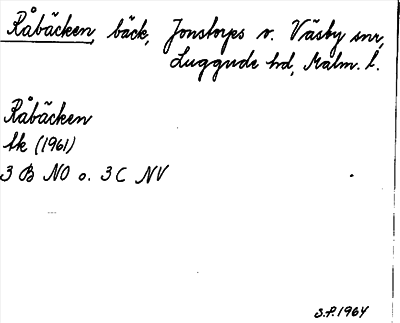 Råbäcken, bäck, Jonstorps o. Väsby snr,
Luggude hd, Malm. l.
Råbäcken
Ek (1961)
3 B NO o. 3 C NV
S.P. 1964